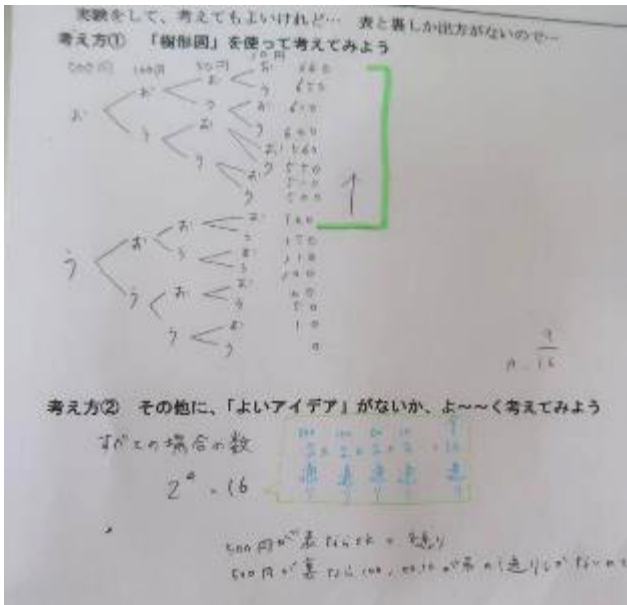 実験をして、考えてもよいけれど… 表と裏しか出方がないので…
考え方① 「樹形図」を使って考えてみよう
500円 100円 50円 10円
お お お お 660
う 650
う お 610
う 600
う お お 560
う 550
う お 510
う 500
う お お お 160
う 150
う お 110
う 100
う お お 60
う 50
う お 10
う 0
9
16
考え方② その他に、「よいアイデア」がないか、よ~~く考えてみよう
すべての場合の数
500 100 50 10
2 × 2 × 2 × 2 = 16
通 通 通 通 通
り り り り り
2⁴ = 16
500円が表なら
500円が裏なら100、50、10が表の1通りしかないの